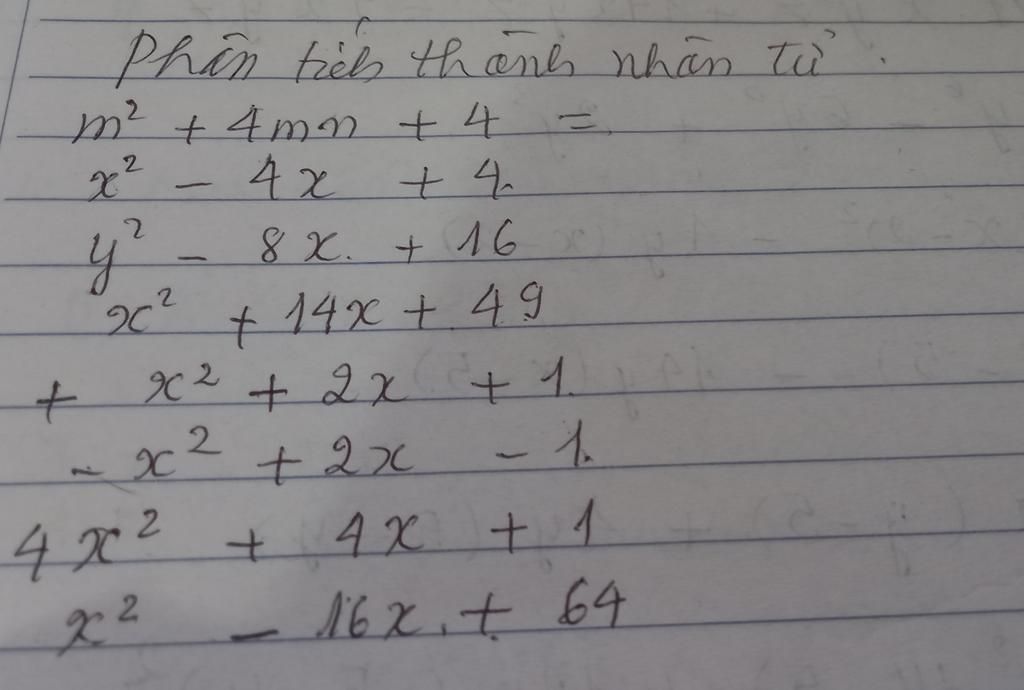 Phân tích thành nhân tử.
m² + 4mn + 4 =
x² - 4x + 4.
y² - 8x. + 16
x² + 14x + 49
+ x² + 2x + 1.
- x² + 2x - 1.
4x² + 4x + 1
x² - 16x. + 64